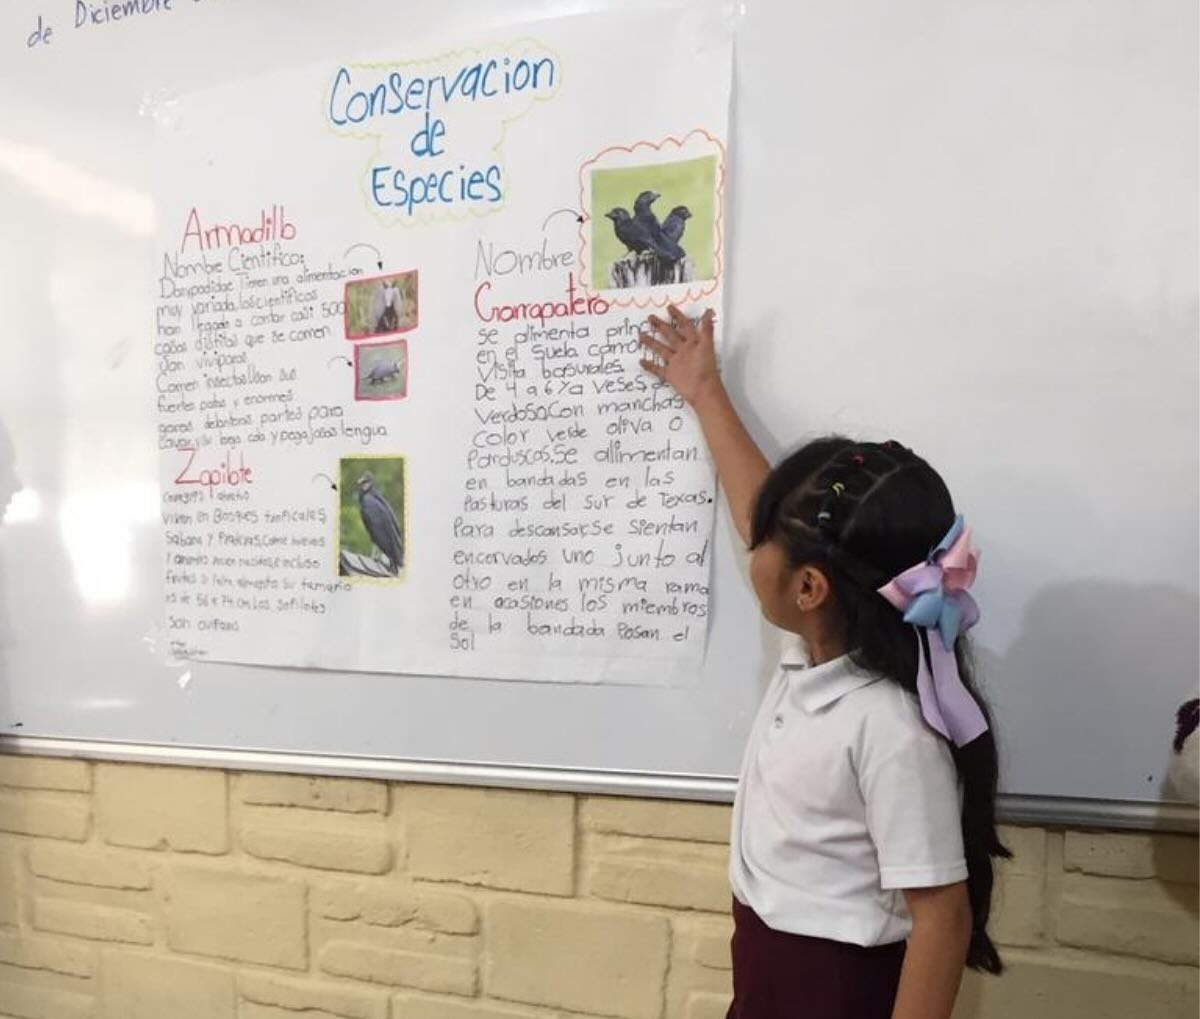 de Diciembre
Conservacion
de
Especies
Armadillo
Nombre Científico:
Dasypodidae Tienen una alimentacion
muy variada, los científicos
han llegado a contar casi 500
cosas distitas que se comen
Son viviparos
Comen insectos Usan sus
fuertes patas y enormes
garas delanteras partes para
cavar, y su larga cola y pegajosas lengua
Zopilote
viven en Bosques tropicales,
Sabana y Praderas, Come huevos
Y animales recien nacidos, e incluso
frutas
es de 56 a 74 cm Los sopilotes
son oviparos
Nombre
Garrapatero
se alimenta
en el suela
visita basurales.
De 4 a 6 Ya veses
verdoso, con manchas
color verde oliva o
Parduscas. Se allimentan
en bandadas en las
Pasturas del sur de Texas.
Para descansar, se sientan
encorvados uno junto al
otro en la misma rama
en ocasiones los miembros
de la bandada Posan el
Sol